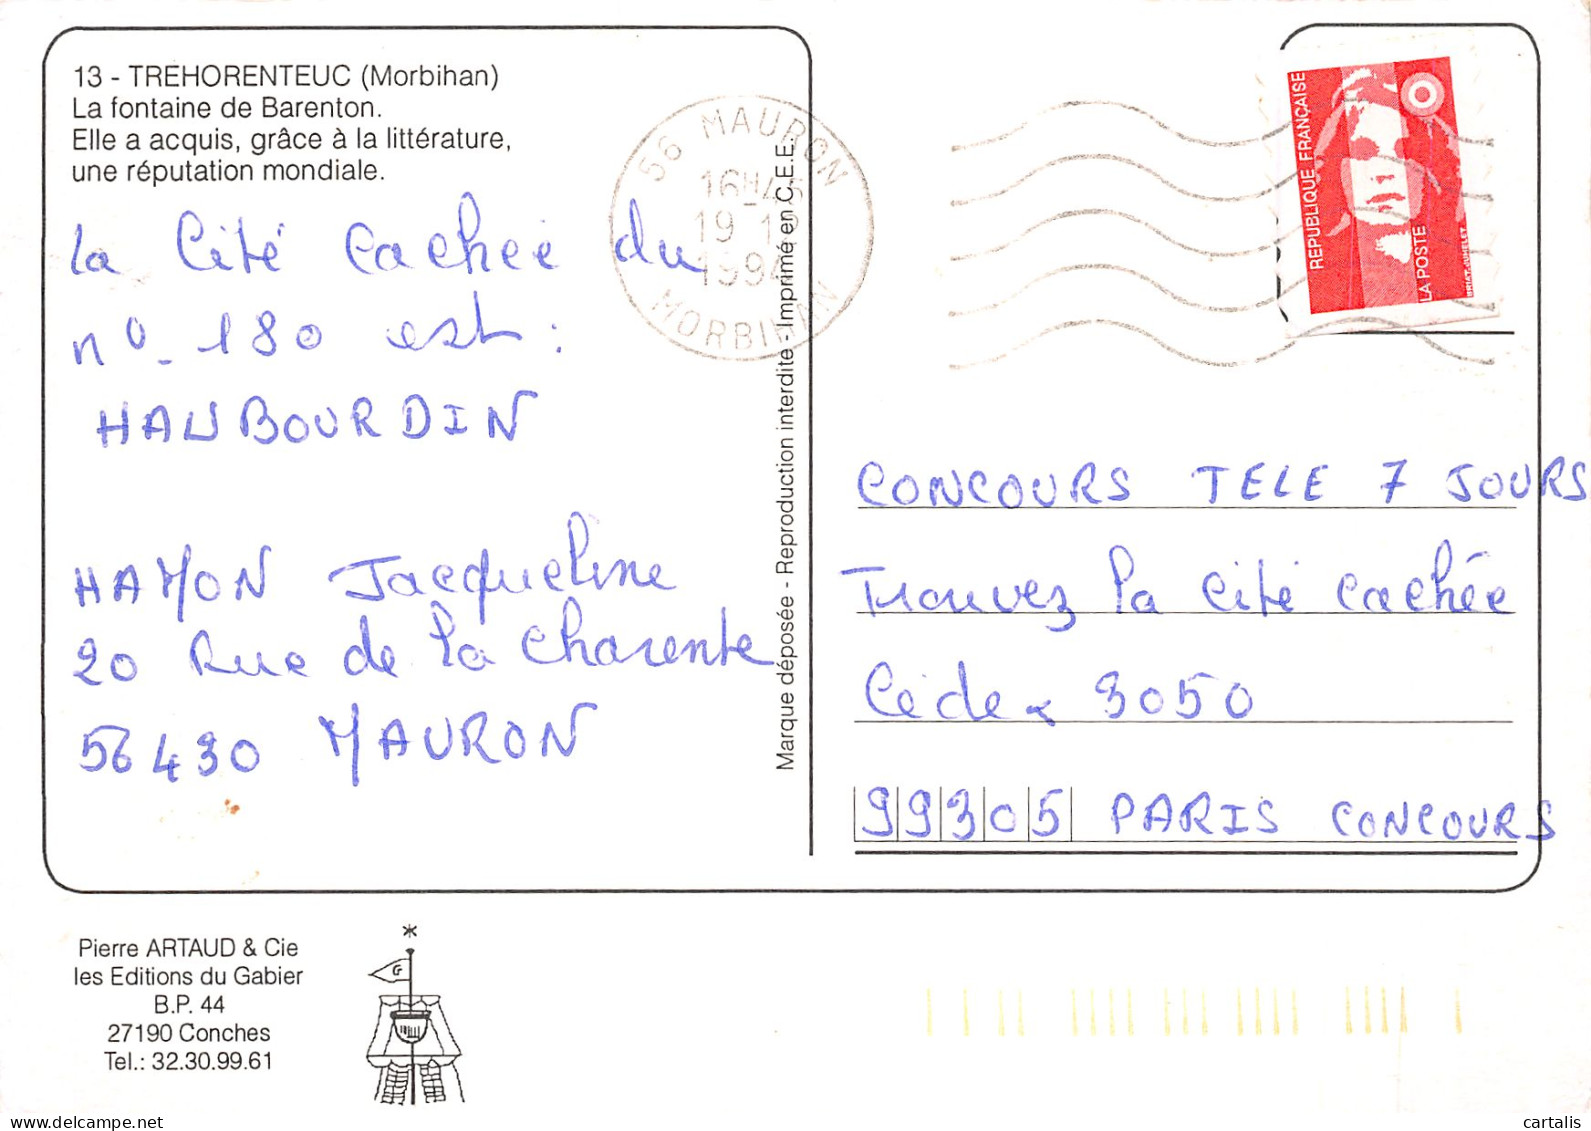 13 - TREHORENTEUC (Morbihan)
La fontaine de Barenton.
Elle a acquis, grâce à la littérature,
une réputation mondiale.
la Cité Cachée du
n° 180 est :
HAUBOURDIN
HAMON Jacqueline
20 Rue de la Charente
56430 MAURON
Marque déposée - Reproduction interdite - Imprimé en C.E.E.
56 MAURON
16H45
19
199
MORBIHAN
REPUBLIQUE FRANÇAISE
LA POSTE
BRIAT JUMELET
CONCOURS TELE 7 JOURS
Trouvez la Cité Cachée
Cédex 3050
99305 PARIS CONCOURS
Pierre ARTAUD & Cie
les Editions du Gabier
B.P. 44
27190 Conches
Tel.: 32.30.99.61
G
delcampe.net
cartalis